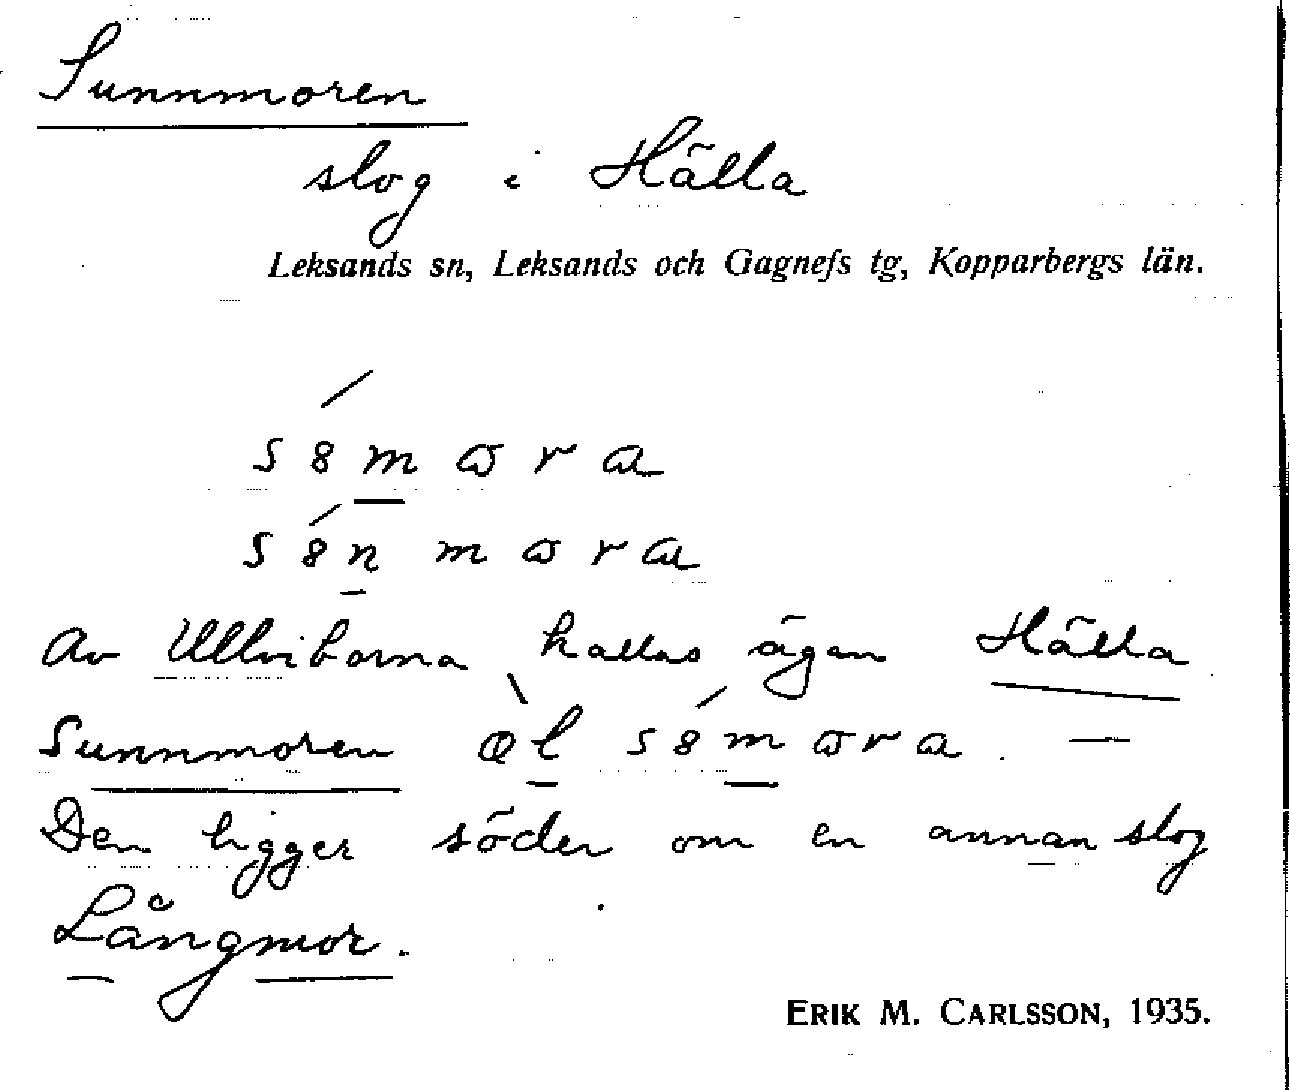 Sunnmoren
slog i Hälla
Leksands sn, Leksands och Gagnefs tg, Kopparbergs län.
s8́mꞷra
s8́nmꞷra
Av Ullviborna kallas ägan Hälla
Sunnmoren s8́mꞷra. —
Den ligger söder om en annan slog
Långmor.
ERIK M. CARLSSON, 1935.